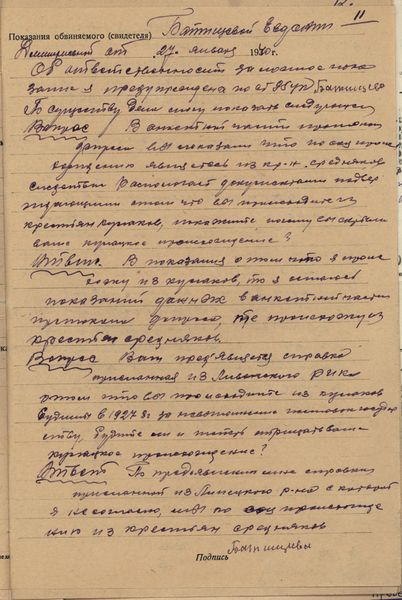 11
Показания обвиняемого (свидетеля)
27 января 193
Об ответственности за ложное пока
зание я предупреждена по ст 95 УК
По существу дела могу показать следующее
Вопрос В анкетной части протокола
допроса вы показали что по соц проис
хождению являетесь из кр-н середняков
следствие располагает документами подтвер
ждающими о том что вы происходите из
крестьян кулаков, покажите почему вы скрыли
ваше кулацкое происхождение?
Ответ. В показания о том что я проис
хожу из кулаков, то я остаюсь
показаний данных в анкетной части
протокола допроса, что происхожу из
крестьян середняков.
Вопрос Вам пред'является справка
присланная из РИКа
о том что вы происходите из кулаков
в 1927 г. за невыполнение государ
ству, будете ли и теперь отрицать ваше
кулацкое происхождение?
Ответ По предъявлении мне справки
присланной из р-на с которой
я не согласна, по соц происхожде
нию из крестьян середняков
Подпись